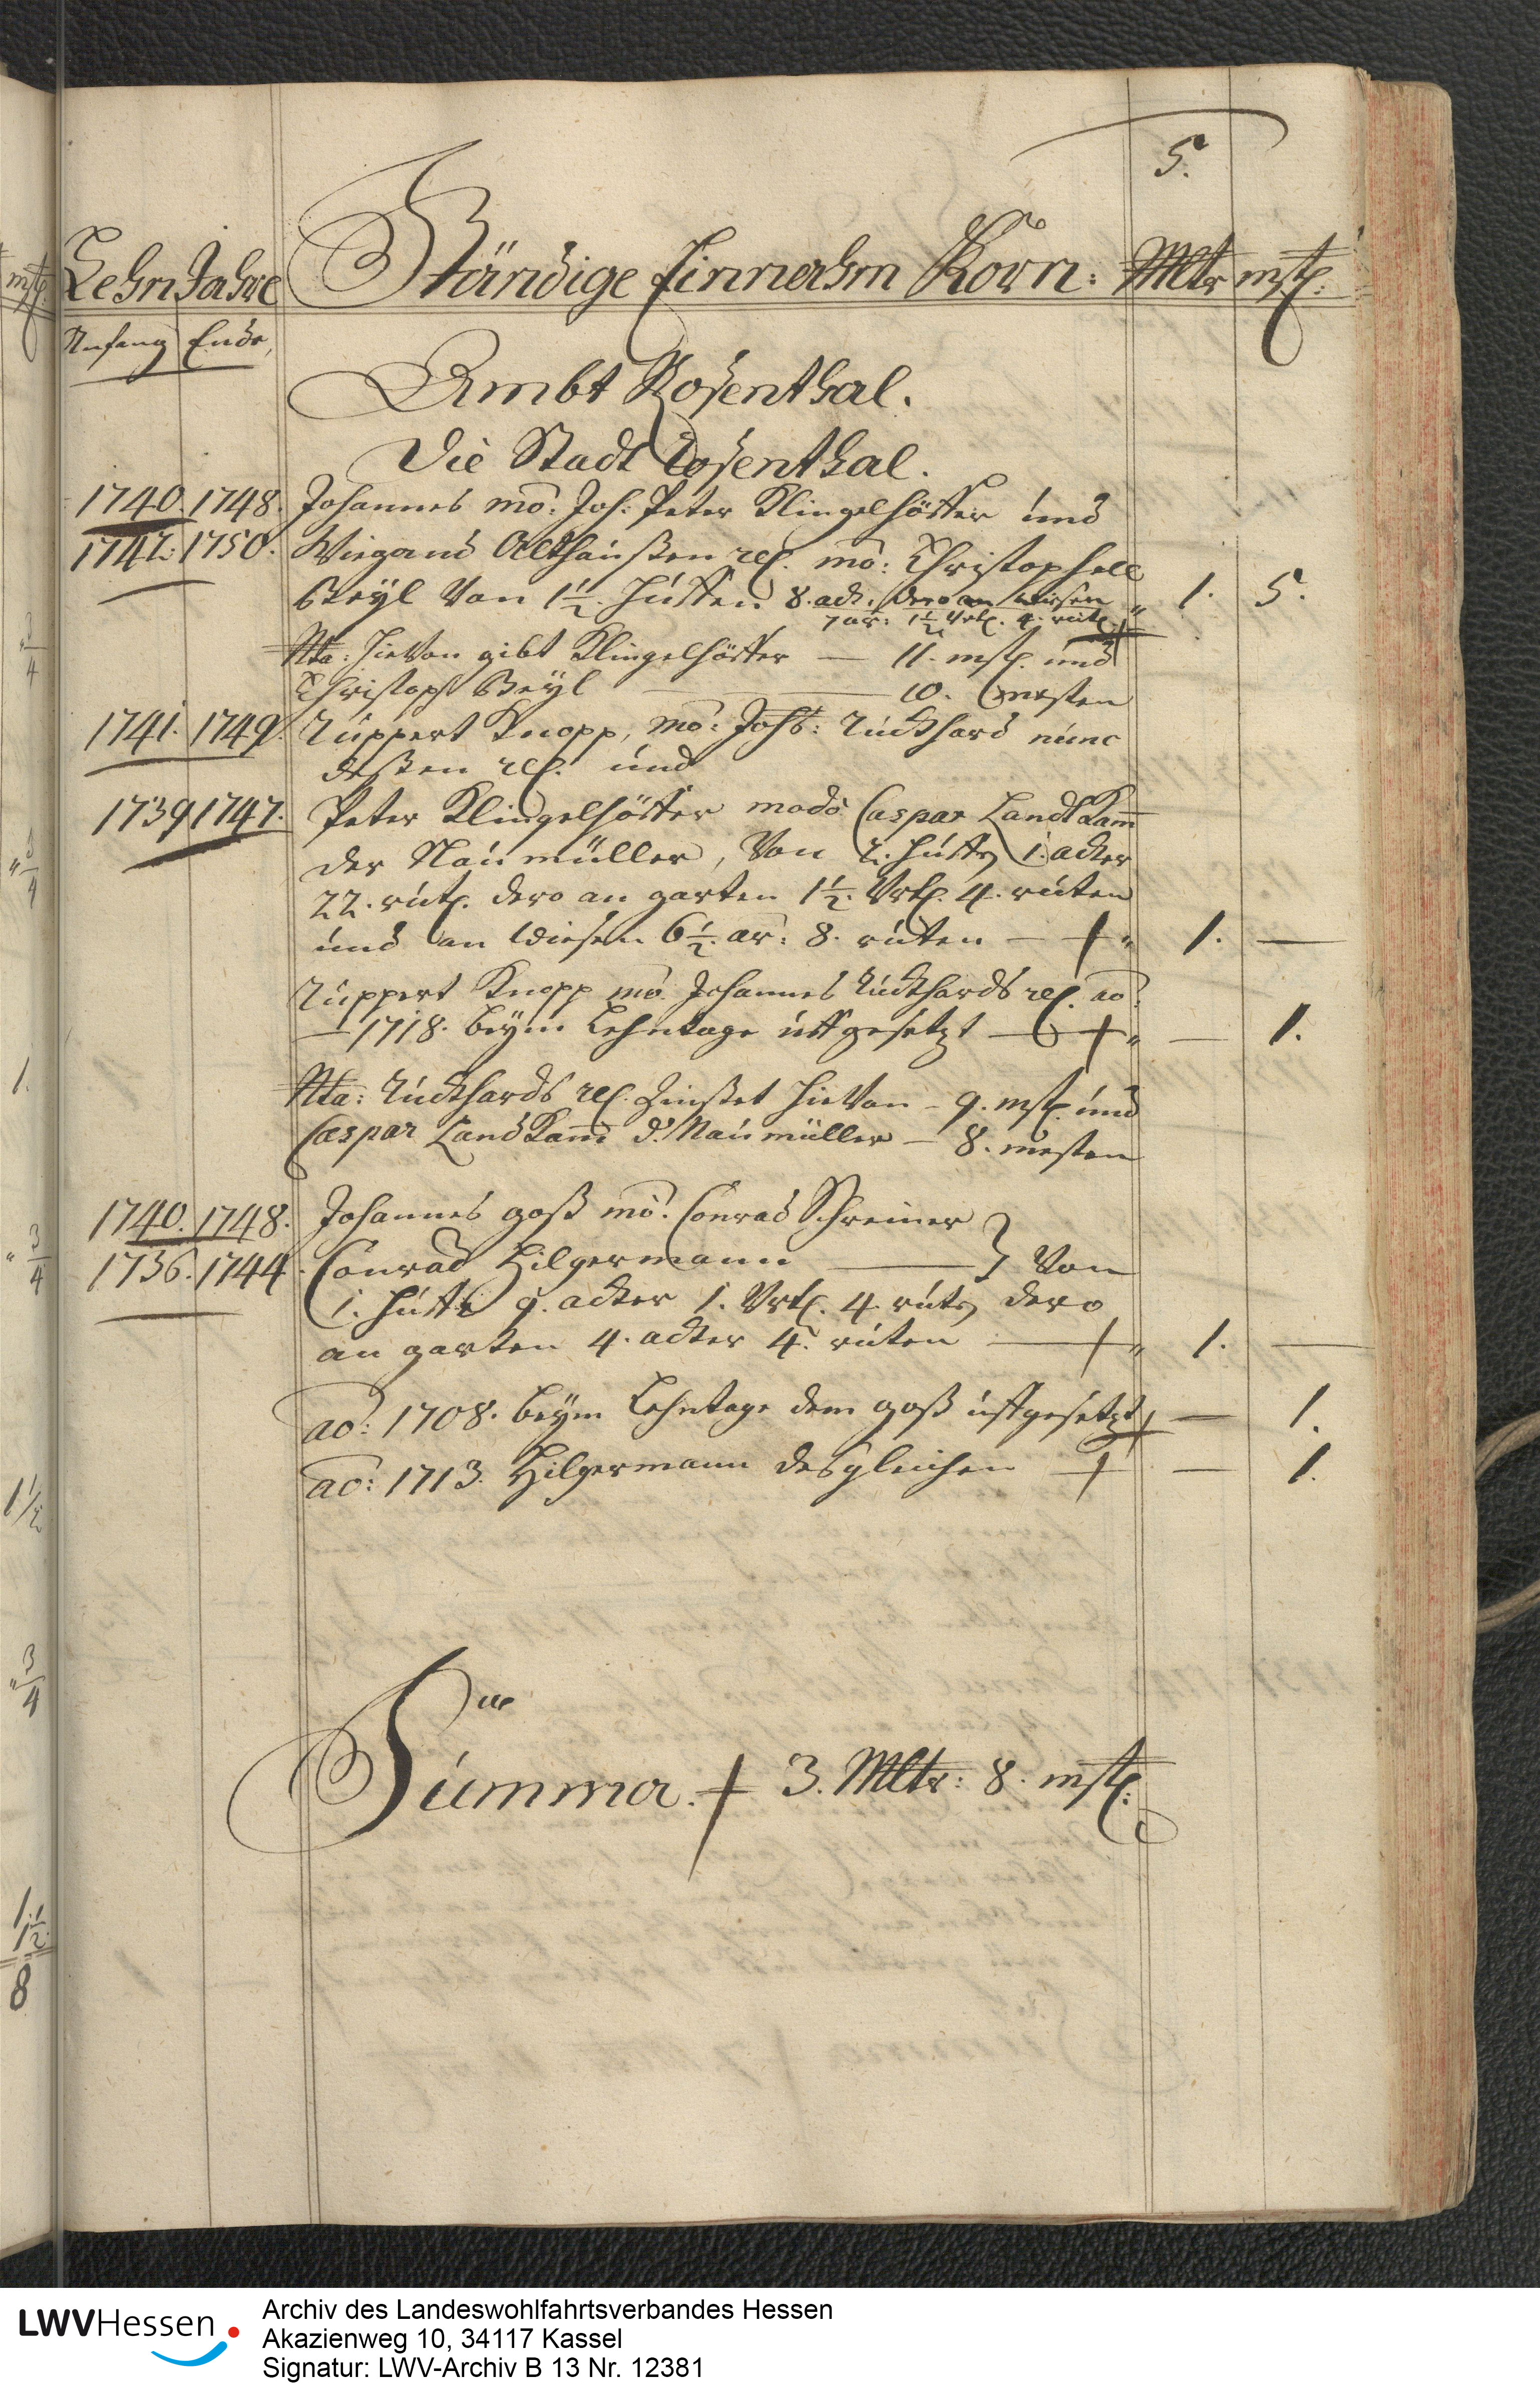 5.
Lehn Jahre Ständige Einnahm Korn: Mltr mst:
Anfang Ende,
Ambt Rosenthal.
Die Stadt Rosenthal.
1740. 1748. Johannes mo: Joh: Peter Klingelhöffer und
1742. 1750. Wiegand Althaußen rel. mo: Christophell
Beÿl Von 1½. Huffen 8. ack. dero an wiesen " 1. 5.
7 ar: 1½ Vrtl. 4. rut.
Nta: hieVon gibt Klingelhöffer — 11. mst. und
Christoph Beÿl — 10. mesten
1741. 1749. Ruppert Knopp, mo: Johs: Ruckhard nunc
deßen rel. und
1739 1747. Peter Klingelhöffer modo Caspar LandtKam
der Naumüller, Von 2. huffen 1. acker
22. rut. dero an garten 1½. Vrtl. 4. ruten
und an Wiesen 6½. ar: 8. ruten — " 1. —
Ruppert Knopp mo. Johannes Ruckhards rel. ao:
1718. beÿm Lehntage uffgesetzt — " — 1.
Nta: Ruckhards rel. Zinßet hieVon – 9. mst. und
Caspar LandKam d. Naumüller — 8. mesten
1740. 1748. Johannes goß mo. Conrad Schreiner
1736. 1744. Conrad Hilgermann — } Von
1. huffe 9. acker 1. Vrtl. 4. ruten dero
an garten 4. acker 4. ruten — " 1. —
ao: 1708. beÿm Lehntage dem goß uffgesetzt — 1.
ao: 1713. Hilgermann desgleichen — — 1.
Summa. 3. Mltr: 8. mst:
LWVHessen
Archiv des Landeswohlfahrtsverbandes Hessen
Akazienweg 10, 34117 Kassel
Signatur: LWV-Archiv B 13 Nr. 12381